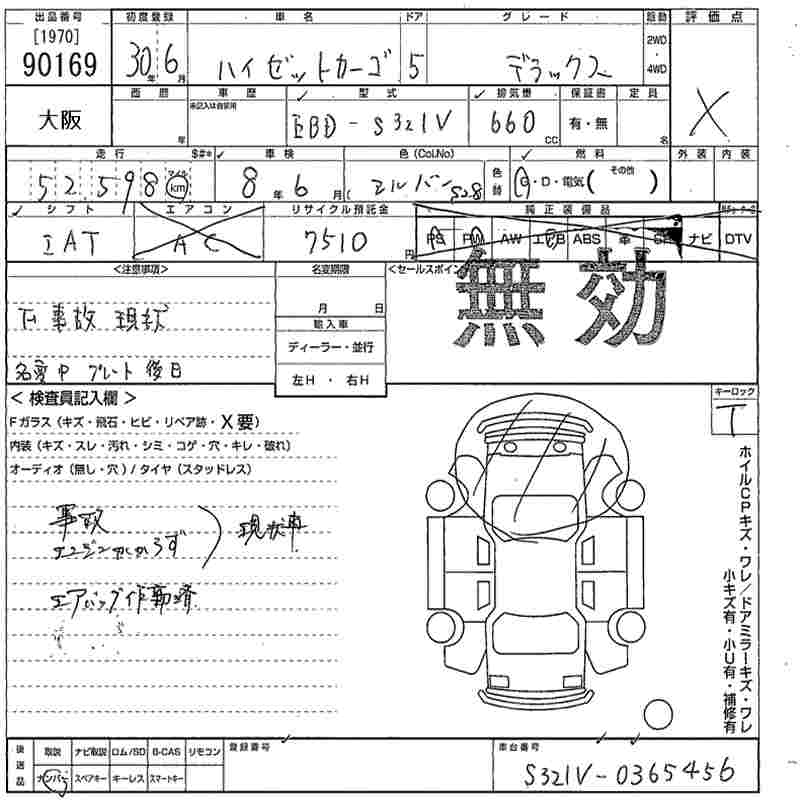 出品番号 初度登録 車名 ドア グレード 駆動 評価点
[1970] 2WD
90169 30年 6月 ハイゼットカーゴ 5 デラックス ・ 4WD
大阪 車歴 型式 排気量 保証書 定員 X
未記入は自家用
年 EBD-S321V 660 CC 有・無 名
走行 $#* 車検 色(Col.No) 色替 燃料 外装 内装
52,598 マイル km 8年 6月( シルバー S28 G・D・電気( その他 )
シフト エアコン リサイクル預託金 純正装備品
IAT AC 7510円 PS PW AW エアB ABS 革 SR ナビ DTV
<注意事項> 名変期限 <セールスポイント
無効
月 日
事故 現状
輸入車
ディーラー・並行
名変中 プレート後日
左H ・ 右H
< 検査員記入欄 > キーロック
Fガラス(キズ・飛石・ヒビ・リペア跡・X要) T
内装(キズ・スレ・汚れ・シミ・コゲ・穴・キレ・破れ)
オーディオ(無し・穴)/タイヤ(スタッドレス)
事故
エンジンかからず
現状車
エアバッグ作動済
ホイルCPキズ・ワレ/ドアミラーキズ・ワレ
小キズ有・小U有・補修有
後送品 取説 ナビ取説 ロム/SD B-CAS リモコン 登録番号 車台番号
ナンバー スペアキー キーレス スマートキー S321V-0365456